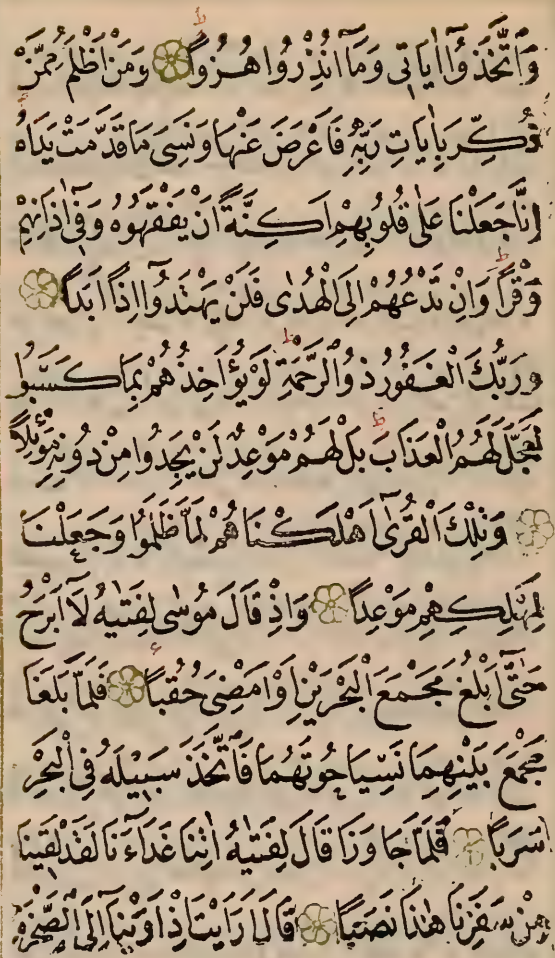 وَاتَّخَذُوٓا اٰيَاتٖى وَمَٓا اُنْذِرُوا هُزُوًا وَمَنْ اَظْلَمُ مِمَّنْ
ذُكِّرَ بِاٰيَاتِ رَبِّهٖ فَاَعْرَضَ عَنْهَا وَنَسِىَ مَا قَدَّمَتْ يَدَاهُ
اِنَّا جَعَلْنَا عَلٰى قُلُوبِهِمْ اَكِنَّةً اَنْ يَفْقَهُوهُ وَفٖٓى اٰذَانِهِمْ
وَقْرًا وَاِنْ تَدْعُهُمْ اِلَى الْهُدٰى فَلَنْ يَهْتَدُوٓا اِذًا اَبَدًا
وَرَبُّكَ الْغَفُورُ ذُو الرَّحْمَةِ لَوْ يُؤَاخِذُهُمْ بِمَا كَسَبُوا
لَعَجَّلَ لَهُمُ الْعَذَابَ بَلْ لَهُمْ مَوْعِدٌ لَنْ يَجِدُوا مِنْ دُونِهٖ مَوْئِلًا
وَتِلْكَ الْقُرٰٓى اَهْلَكْنَاهُمْ لَمَّا ظَلَمُوا وَجَعَلْنَا
لِمَهْلِكِهِمْ مَوْعِدًا وَاِذْ قَالَ مُوسٰى لِفَتٰيهُ لَٓا اَبْرَحُ
حَتّٰٓى اَبْلُغَ مَجْمَعَ الْبَحْرَيْنِ اَوْ اَمْضِىَ حُقُبًا فَلَمَّا بَلَغَا
مَجْمَعَ بَيْنِهِمَا نَسِيَا حُوتَهُمَا فَاتَّخَذَ سَبٖيلَهُ فِى الْبَحْرِ
سَرَبًا فَلَمَّا جَاوَزَا قَالَ لِفَتٰيهُ اٰتِنَا غَدَٓاءَنَا لَقَدْ لَقٖينَا
مِنْ سَفَرِنَا هٰذَا نَصَبًا قَالَ اَرَاَيْتَ اِذْ اَوَيْنَٓا اِلَى الصَّخْرَةِ